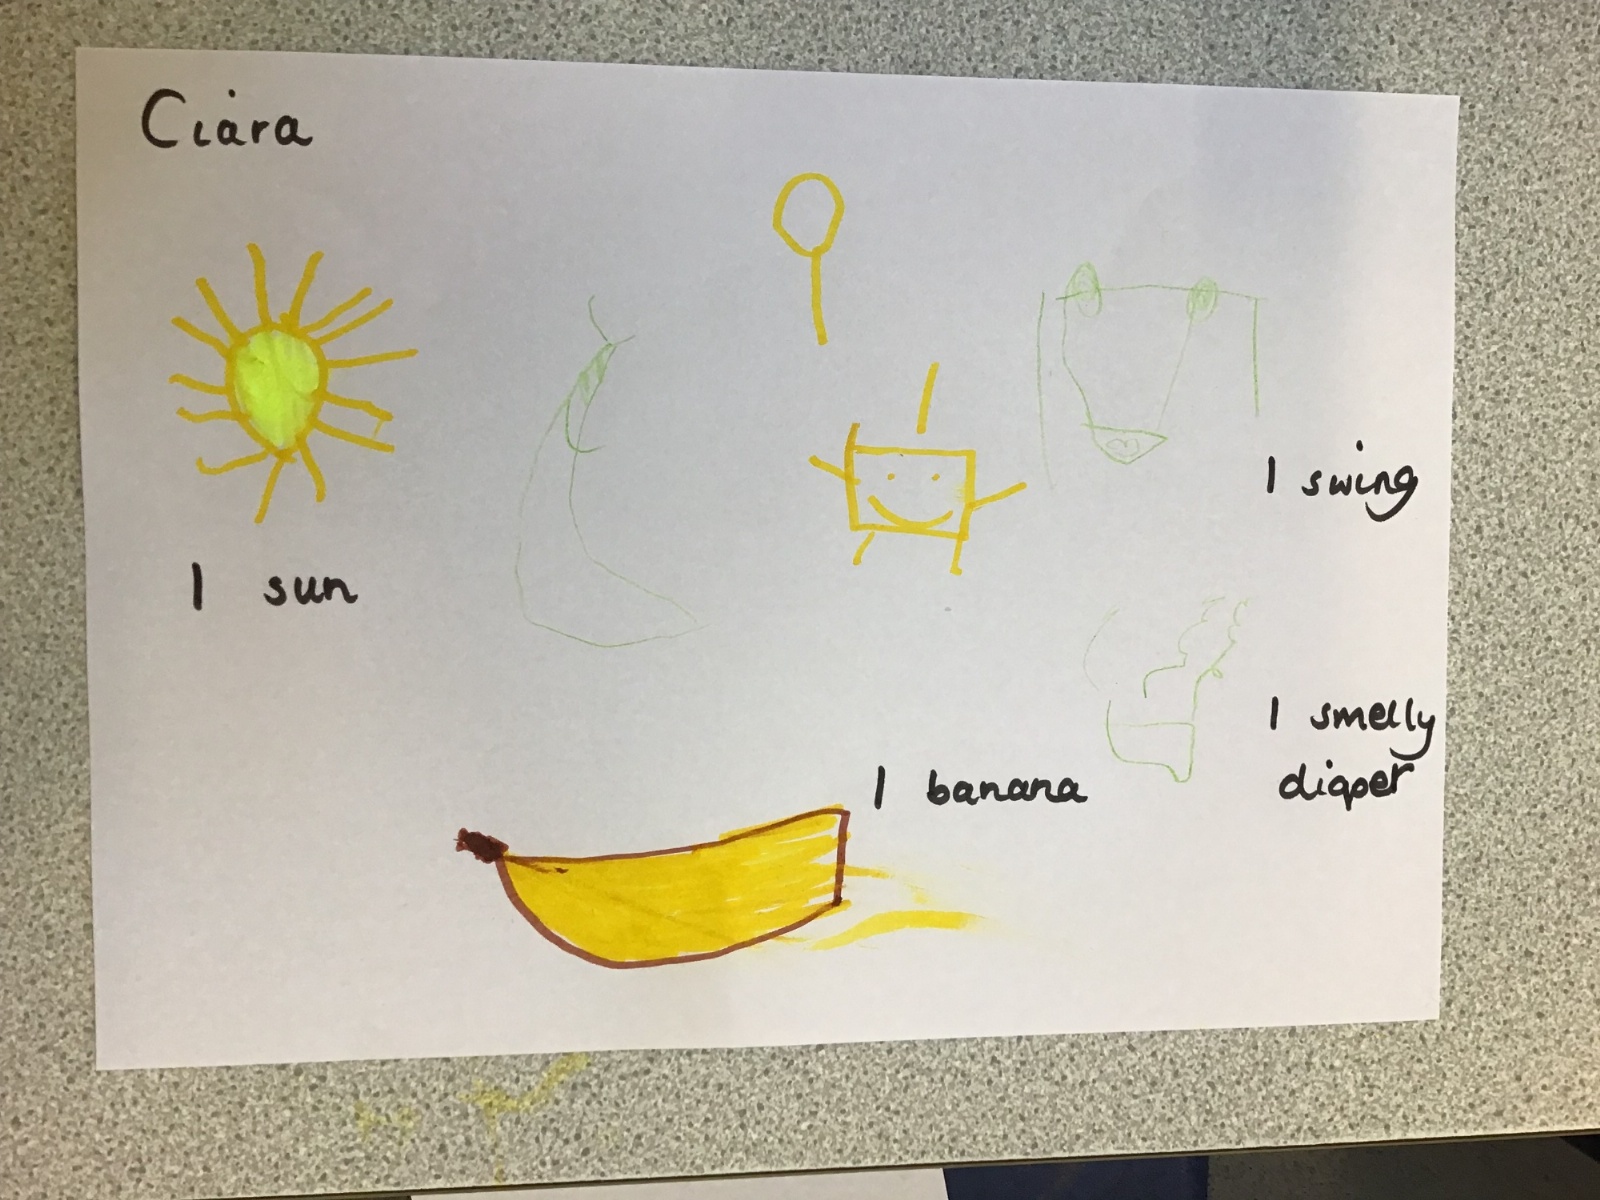 Ciara
1 swing
1 sun
1 smelly
diaper
1 banana